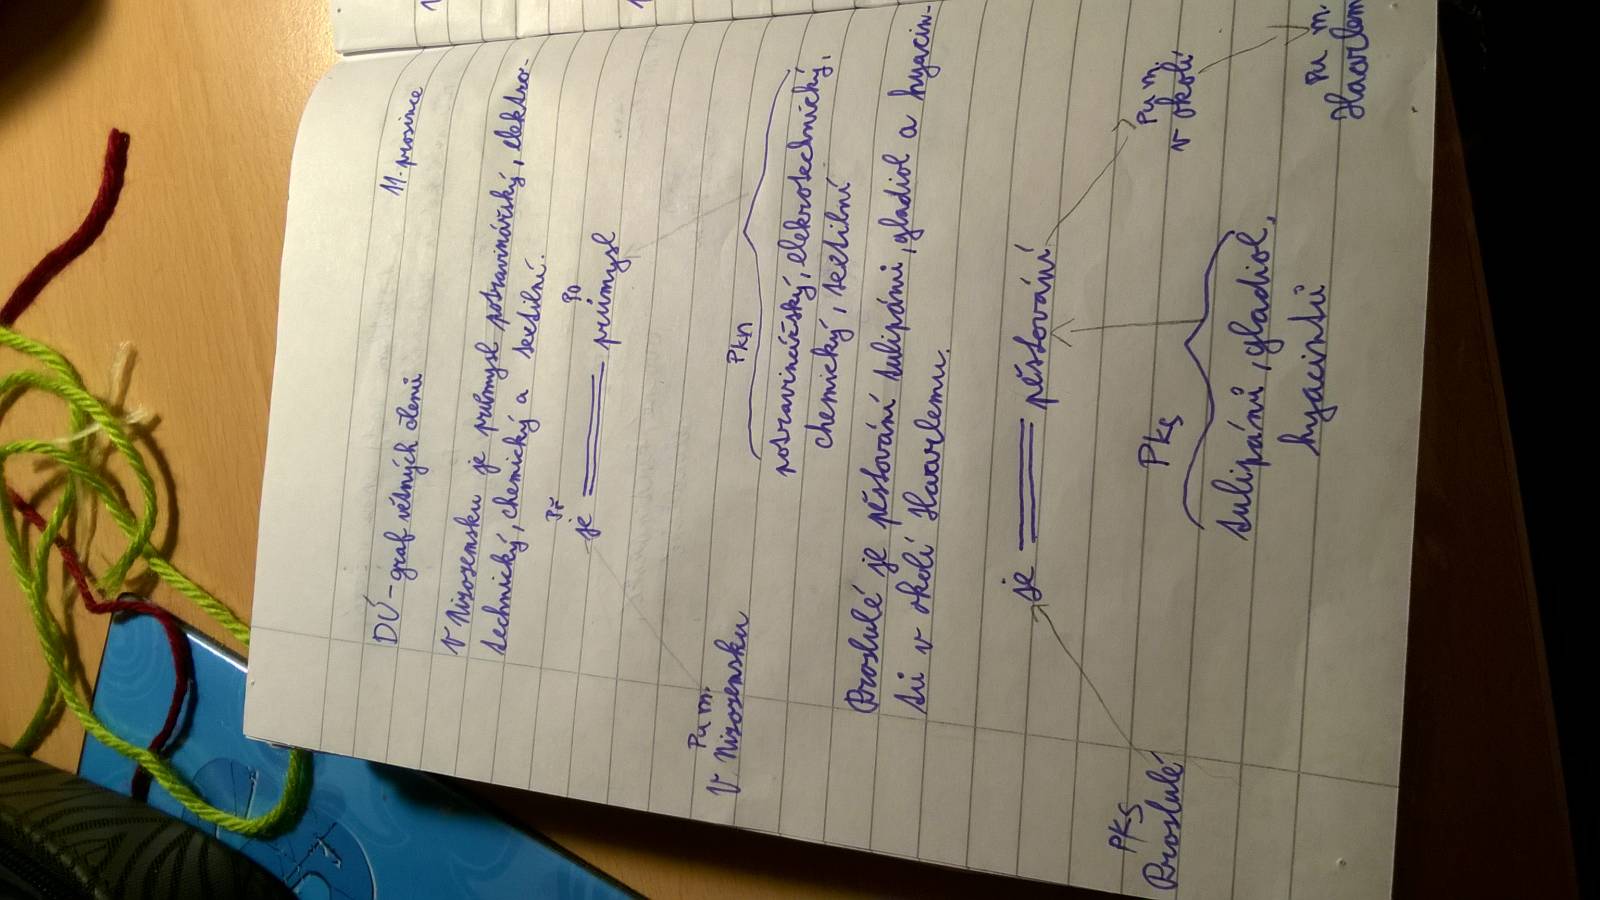 DÚ - graf větných členů 11. prosince
V Nizozemsku je průmysl potravinářský, elektro-
technický, chemický a textilní.
Př Po
je průmysl
Pu m. Pkn
V Nizozemsku
potravinářský, elekrotechnický,
chemický, textilní
Proslulé je pěstování tulipánů, gladiol a hyacin-
tů v okolí Haarlemu.
je pěstování
PKS Pks Pu m.
Proslulé v okolí
tulipánů, gladiol,
hyacintů
Pu m.
Haarlem